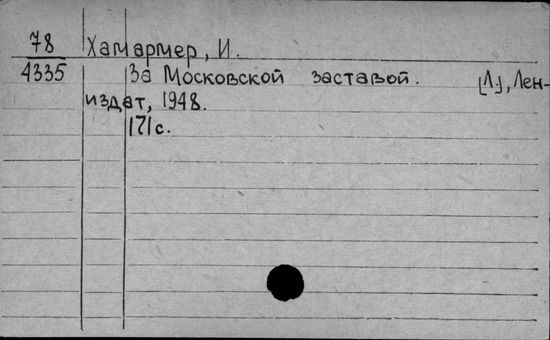 78 Хамармер, И.
4335 За Московской заставой. [Л], Лен-
издат, 1948.
171с.